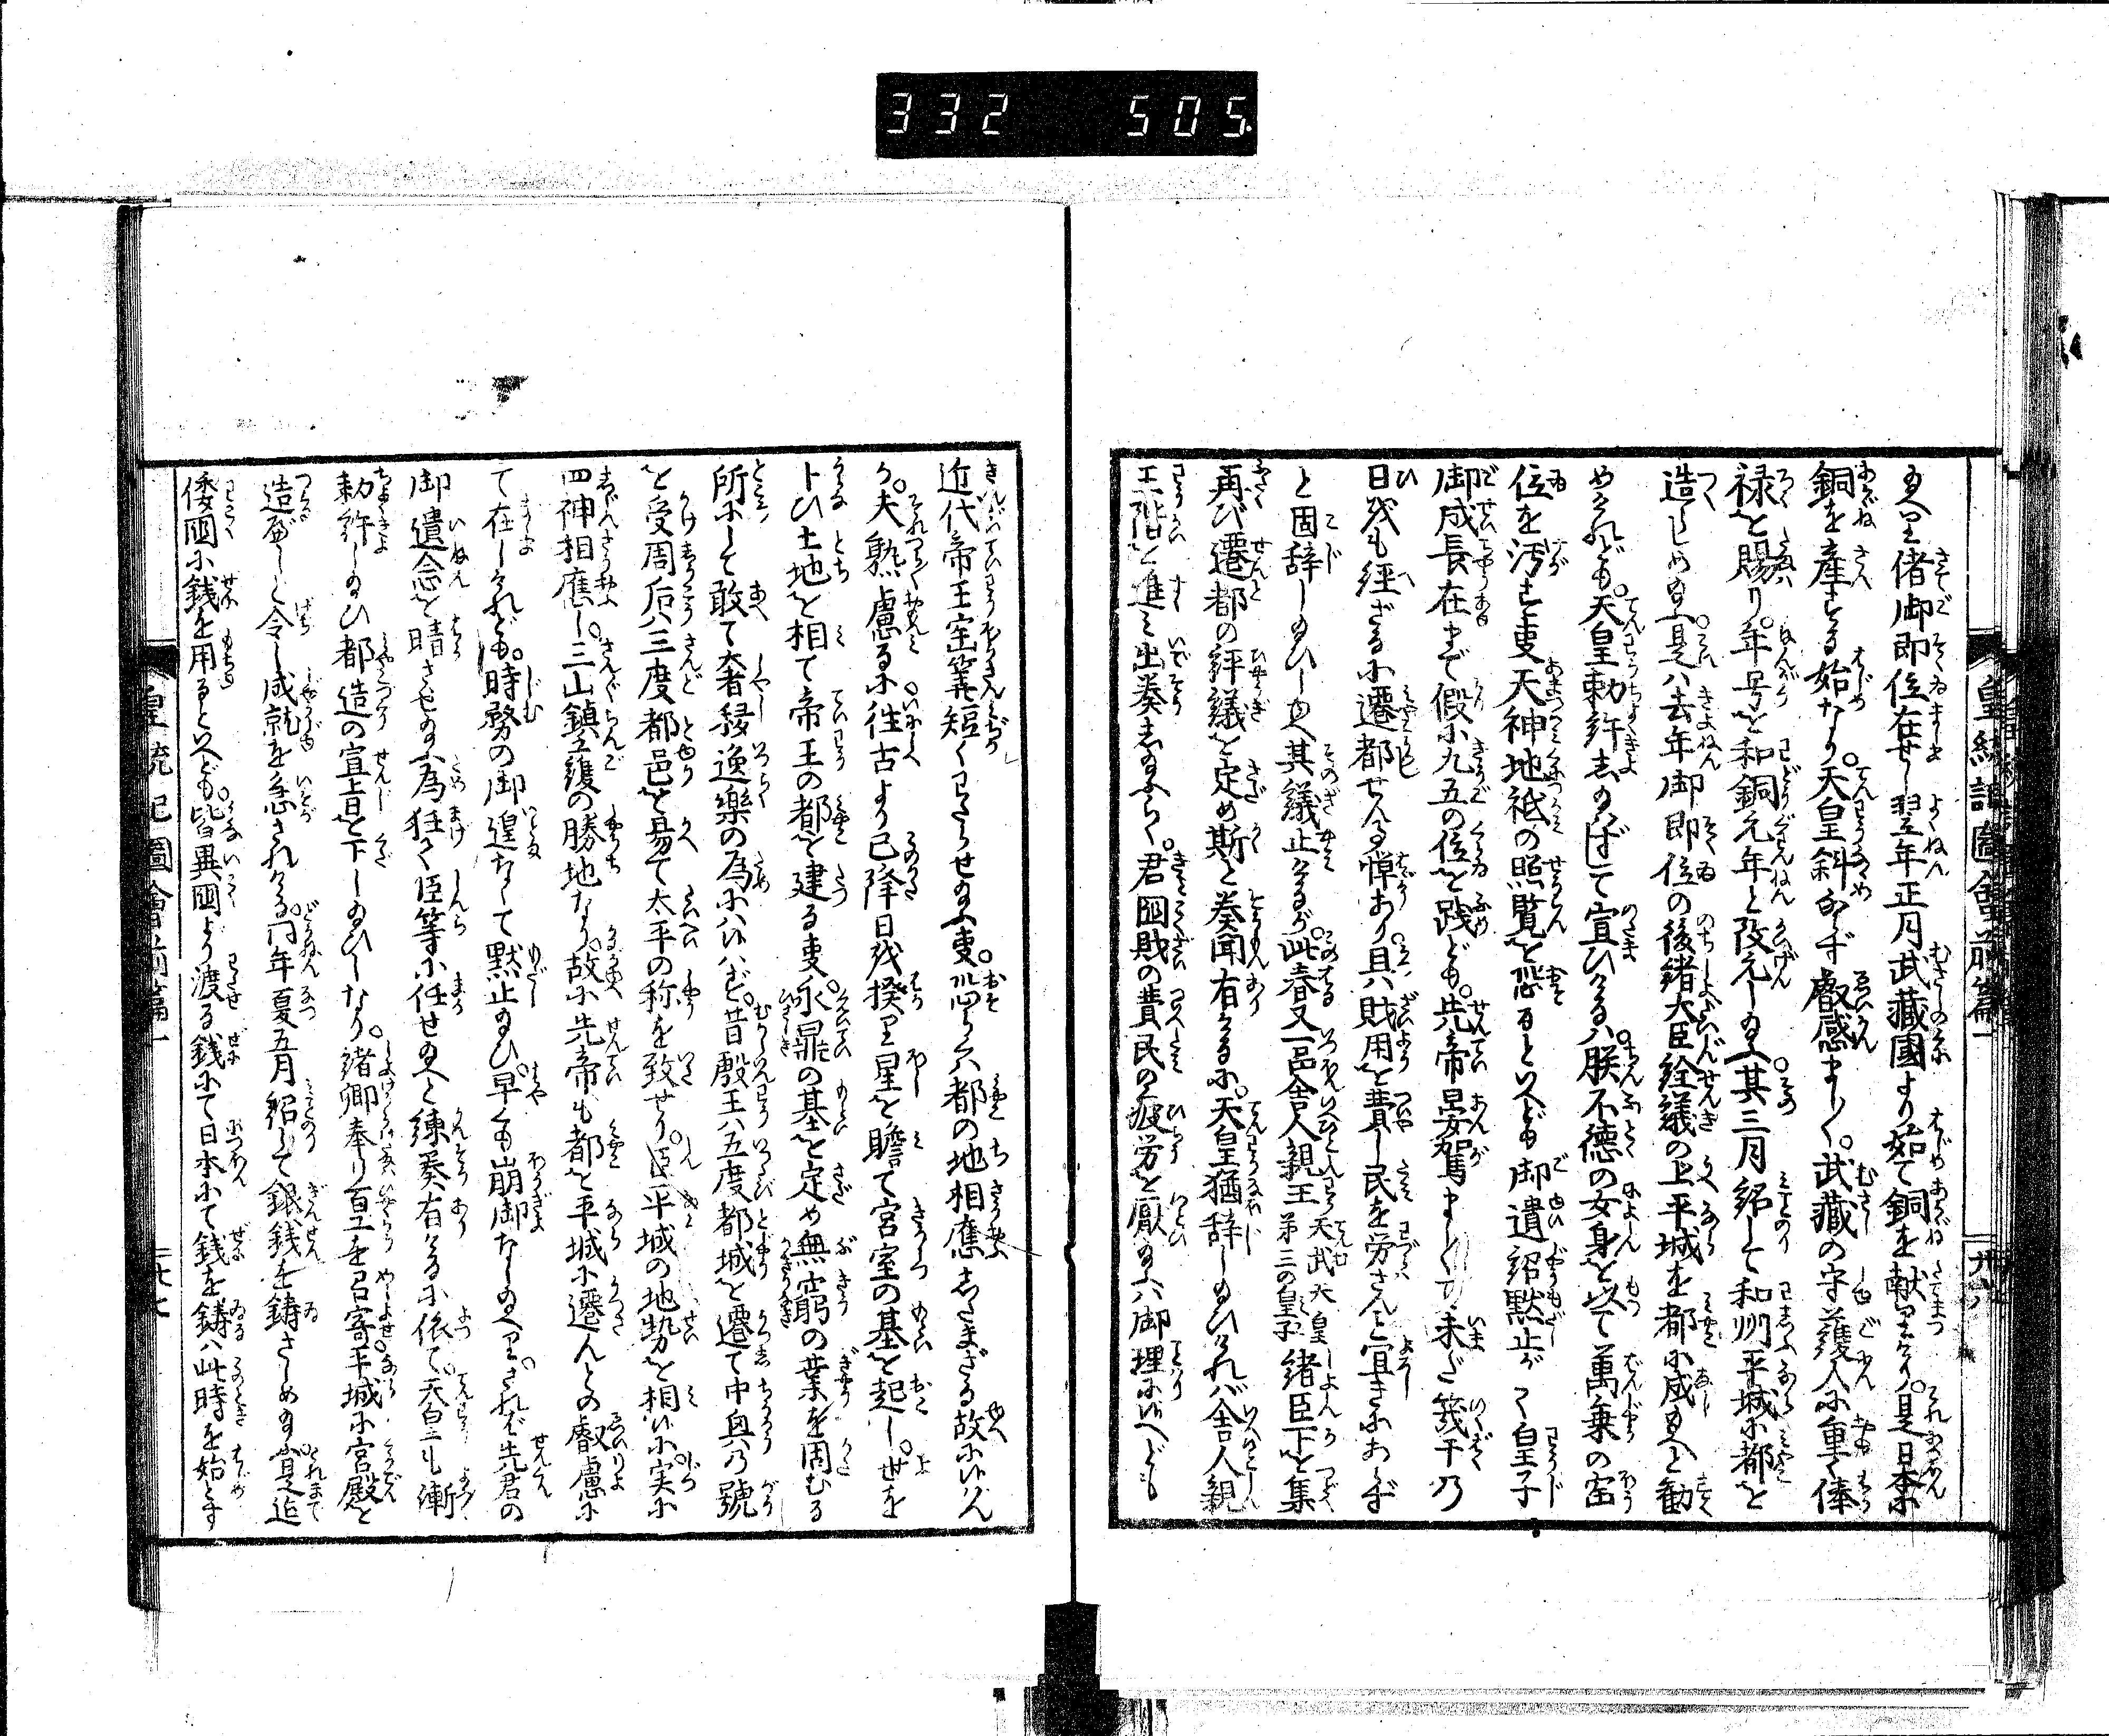 332 505.
皇統記圖會前篇一
給へり偖御即位在せし翌年正月武藏國より始て銅を献りけり。是日本に
銅を産する始なり。天皇斜ならず叡感ましく。武藏の守護人に重く俸
禄を賜り。年号を和銅元年と改元し給へ其三月紹して和州平城に都を
造らしめ給ふ。是ハ去年御即位の後諸大臣銓議の上平城を都に成給へと勧
めけれども。天皇勅許し給はずして宣ひけるハ。朕不徳の女身を以て萬乗の宝
位を汚す事天神地祇の照覧を恐るといへども御遺紹黙止がたく皇子
御成長在まで假に九五の位を践ども。先帝晏駕ましく て未だ幾干乃
日数も經ざるに遷都せんも憚あり。且ハ財用を費し民を労さんこと宜きにあらず
と固辞し給ひしゆへ其議止けるが。此春又一品舎人親王天武天皇第三の皇子諸臣下を集
再び遷都の評議を定め斯と奏聞有けるに。天皇猶辞し給ひけれバ舎人親
王階を進み出奏し給ふらく。君国財の費民の疲労を厭給ふハ御理に候へども
近代帝王宝算短くわたらせ給ふ事。恐らくハ都の地相應したまざる故に候ハん
か。夫熟慮るに往古より已降日数揆り星を瞻て宮室の基を起し。世を
卜ひ土地を相て帝王の都を建る事。永鼎の基を定め無窮の業を固むる
所にして敢て奢移逸樂の為にハ候ハず。昔殷王ハ五度都城を遷て中興乃號
を受周后ハ三度都邑を易て太平の称を致せり。臣平城の地勢を相候に実に
四神相應し。三山鎮護の勝地なり。故に先帝も都を平城に遷んとの叡慮に
て在しけれども。時務の御遑なくて黙止給ひ。早くも崩御なし給へり。されバ先君の
御遺念を晴させ給ふ為枉て臣等に任せ給へと練奏有けるに依て。天皇も漸
勅許し給ひ都造の宣旨を下し給ひしなり。諸卿奉り百工を召寄。平城に宮殿を
造營しと令し成就を急されける。同年夏五月紹して銀銭を鋳さしめ給ふ。是迄
倭国に銭を用るといへども。皆異国より渡る銭にて日本にて銭を鋳ハ此時を始とす
皇統記圖會前篇一
二十七